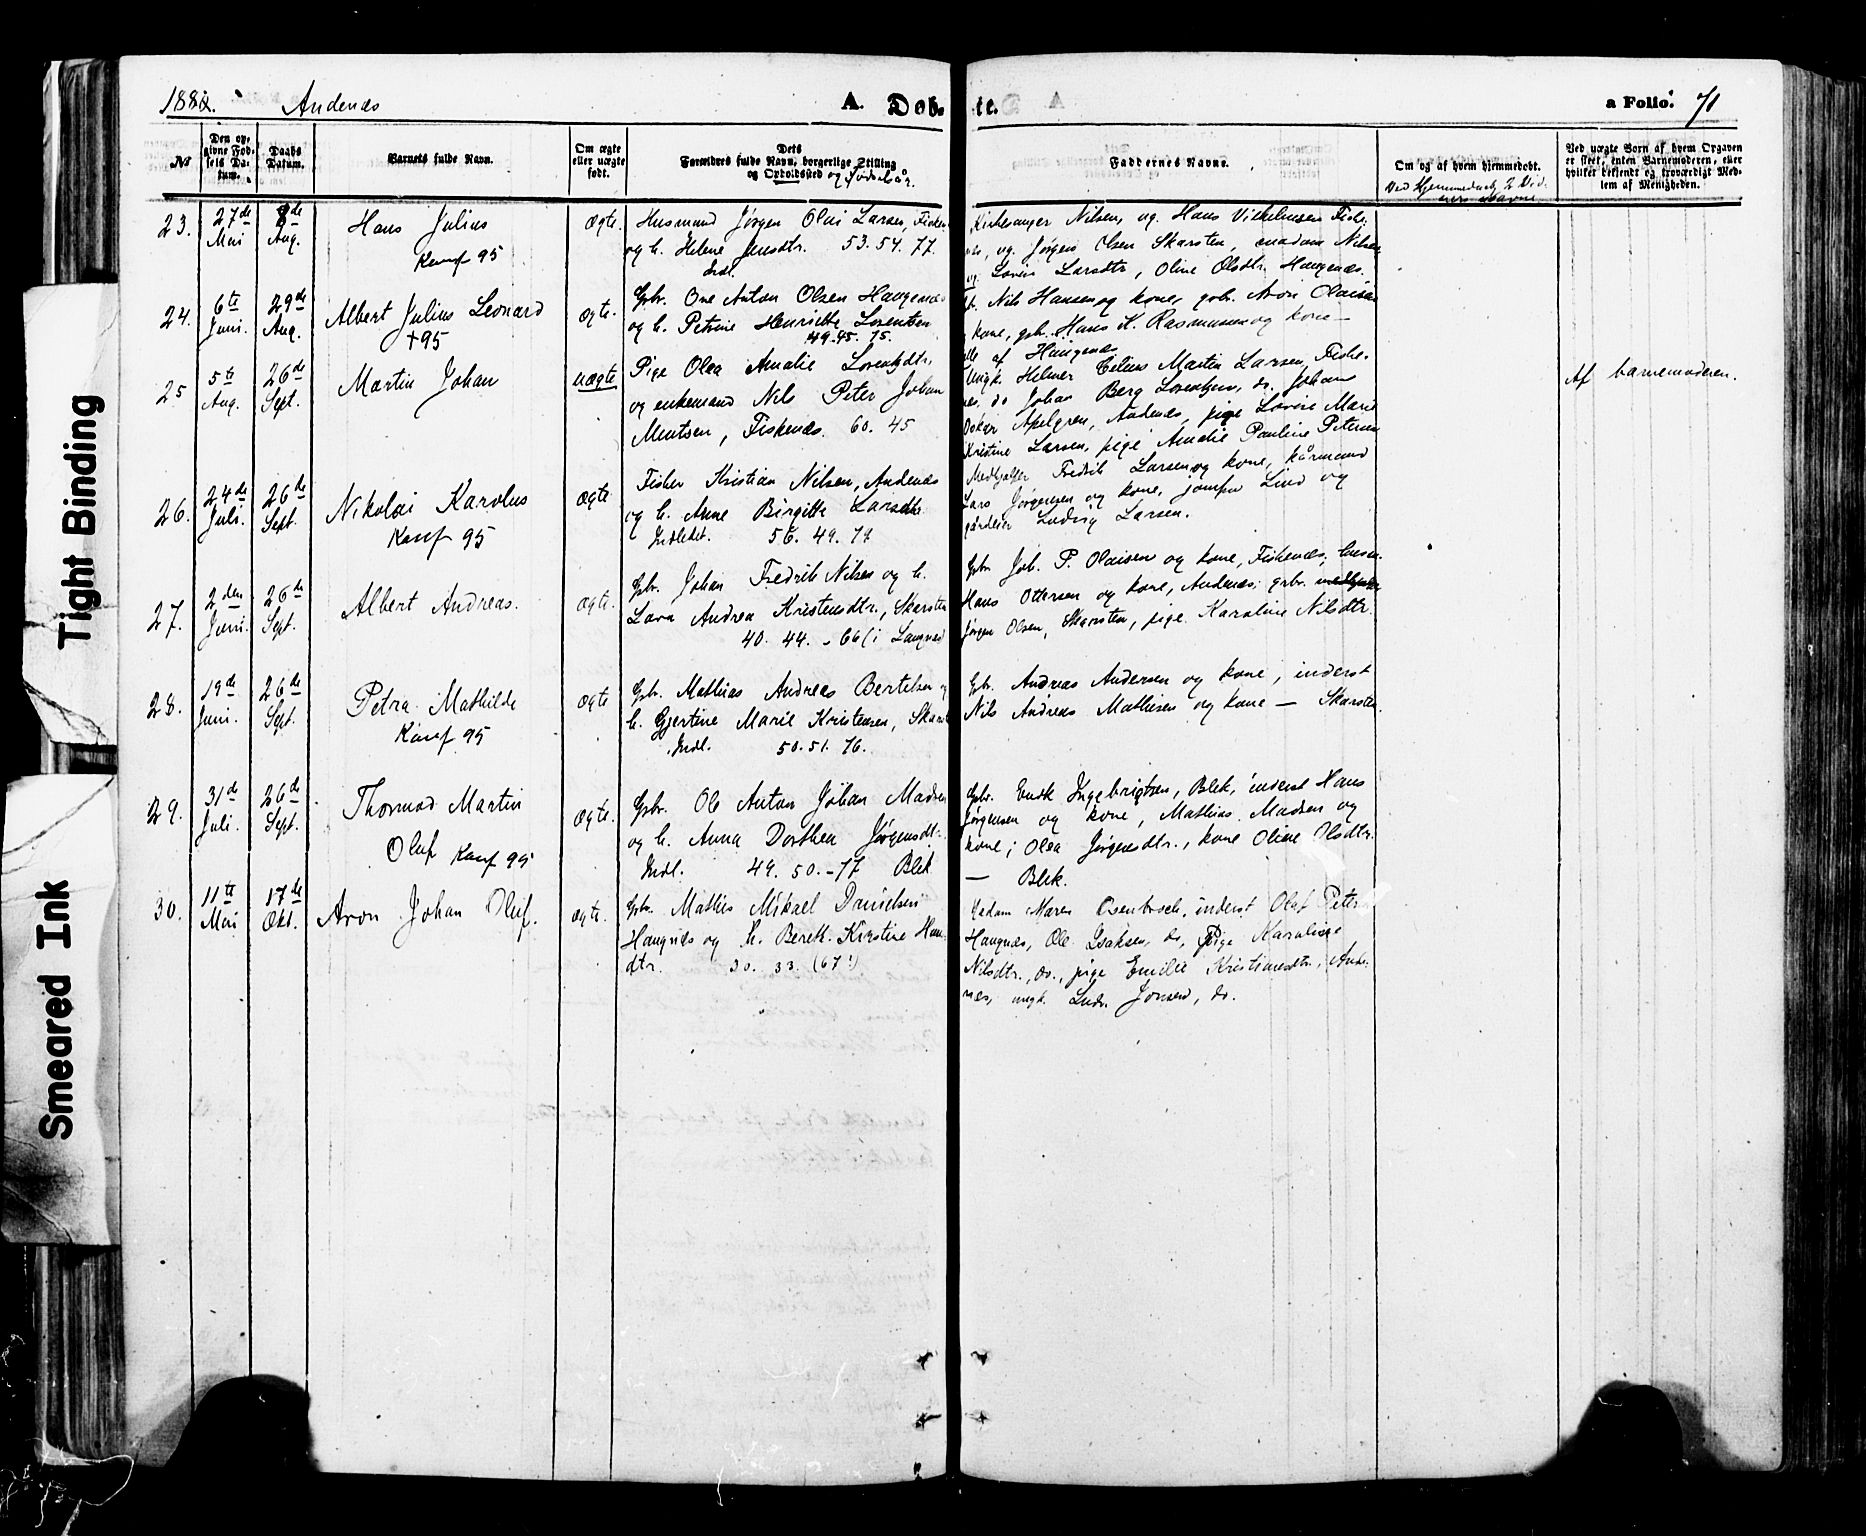 Tight Binding
Smeared Ink
1880. Andenæs A. Døb- te. a Folio: 71
No
Den op-
givne Fød-
sels Da-
tum.
Daabs
Datum.
Barnets fulde Navn.
Om ægte
eller uægte
født.
Dets
Forældres fulde Navn, borgerlige Stilling
og Opholdssted og fødselsår.
Faddernes Navne.
Om og af hvem hjemmedøbt.
Ved Hjemmedaab 2 Vid-
ners Navne
Ved uægte Børn af hvem Opgaven
er skeet, enten Barnemoderen, eller
hvilket bekjendt og troværdigt Med-
lem af Menigheden.
23. 27de Mai 8de Aug. Hans Julius Konf 95 Ægte.
Husmand Jørgen Olai Larsen, Fisken
og h. Helene Jensdtr. 53. 54. 77.
Indl.
Kirkesanger Nilsen, ug. Hans Vilhelmsen Fiske-
næs, ug. Jørgen Olsen Skarsten, madam Nilsen
og Lovise Larsdtr, Oline Olsdtr. Haugenæs.
24. 6te Juni 29de Aug. Albert Julius Leonard +95 Ægte.
Gbr. Ove Anton Olsen Haugenæs
og h. Petrine Henriette Lorentsen
49. 45. 75.
Nils Hansen og kone, gbr. Aron Olaisen
kone, gbr. Hans K. Rasmussen og kone —
alle af Haugenæs
25 5te Aug. 26de Sept. Martin Johan uægte
Pige Olea Amalie Lorentsdtr.
og enkemand Nils Peter Johan
Mentsen, Fiskenæs. 60. 45
Ungk. Helmer Martin Larsen, Fiske-
næs, do Johan Berg Lorentsen, do. Johan
Oskar Apelgren, Andenæs, pige Lovise Marie
Kristine Larsen, pige Amalie Pauline Petersen
Af barnemoderen.
26. 24de Juli 26de Sept. Nikolai Karolus Konf 95 Ægte
Fisker Kristian Nilsen, Andenæs
og h. Anne Birgitte Larsdtr
Indledet. 56. 49. 79
Medhjælper Fredrik Larsen og kone, kårmand
Lars Jørgensen og kone, jomfru Lind og
gårdeier Ludvig Larsen.
27. 2den Juni 26de Sept. Albert Andreas. Ægte.
Gbr. Johan Fredrik Nilsen og h.
Lava Andrea Kristensdtr., Skarsten
40. 44. - 66 (i Langnes
Gbr Joh. P. Olaisen og kone, Fiskenæs;
Hans Ottersen og kone, Andenæs; gbr.
Jørgen Olsen, Skarsten, pige Karoline Nilsdtr.
28. 19de Juni. 26de Sept. Petra Mathilde Konf 95 Ægte
Gbr. Mathias Andreas Bertelsen og
h. Gjertine Marie Kristensen, Skarst
Indl. 50. 51. 76.
Gbr. Andreas Andersen og kone, inderst
Nils Andreas Mathisen og kone — Skarsten.
29. 31de Juli. 26de Sept. Thormod Martin
Oluf Konf 95 Ægte.
Gbr. Ole Anton Johan Madsen
og h. Anna Dorthea Jørgensdtr.
Indl. 49. 50. - 77 Blek
Gbr. Enok Ingebrigtsen, Blek, inderst Hans
Jørgensen og kone, Mathias Madsen og
kone; Olea Jørgensdtr., kone Oline Olsdtr.
— Blek.
30. 11te Mai 17de Okt. Aron Johan Oluf. Ægte.
Gbr. Mathis Mikael Danielsen
Haugnæs og h. Bereth Kirstine Han-
dtr. 30. 33. (67!)
Madam Maren Esenbech, inderst Olaf Peters
Haugnæs, Ole Isaksen, do, Pige Karoline
Nilsdtr., do., pige Emilie Kristiansdtr., Ande-
næs, ungk. Ludv. Jonsen, do.